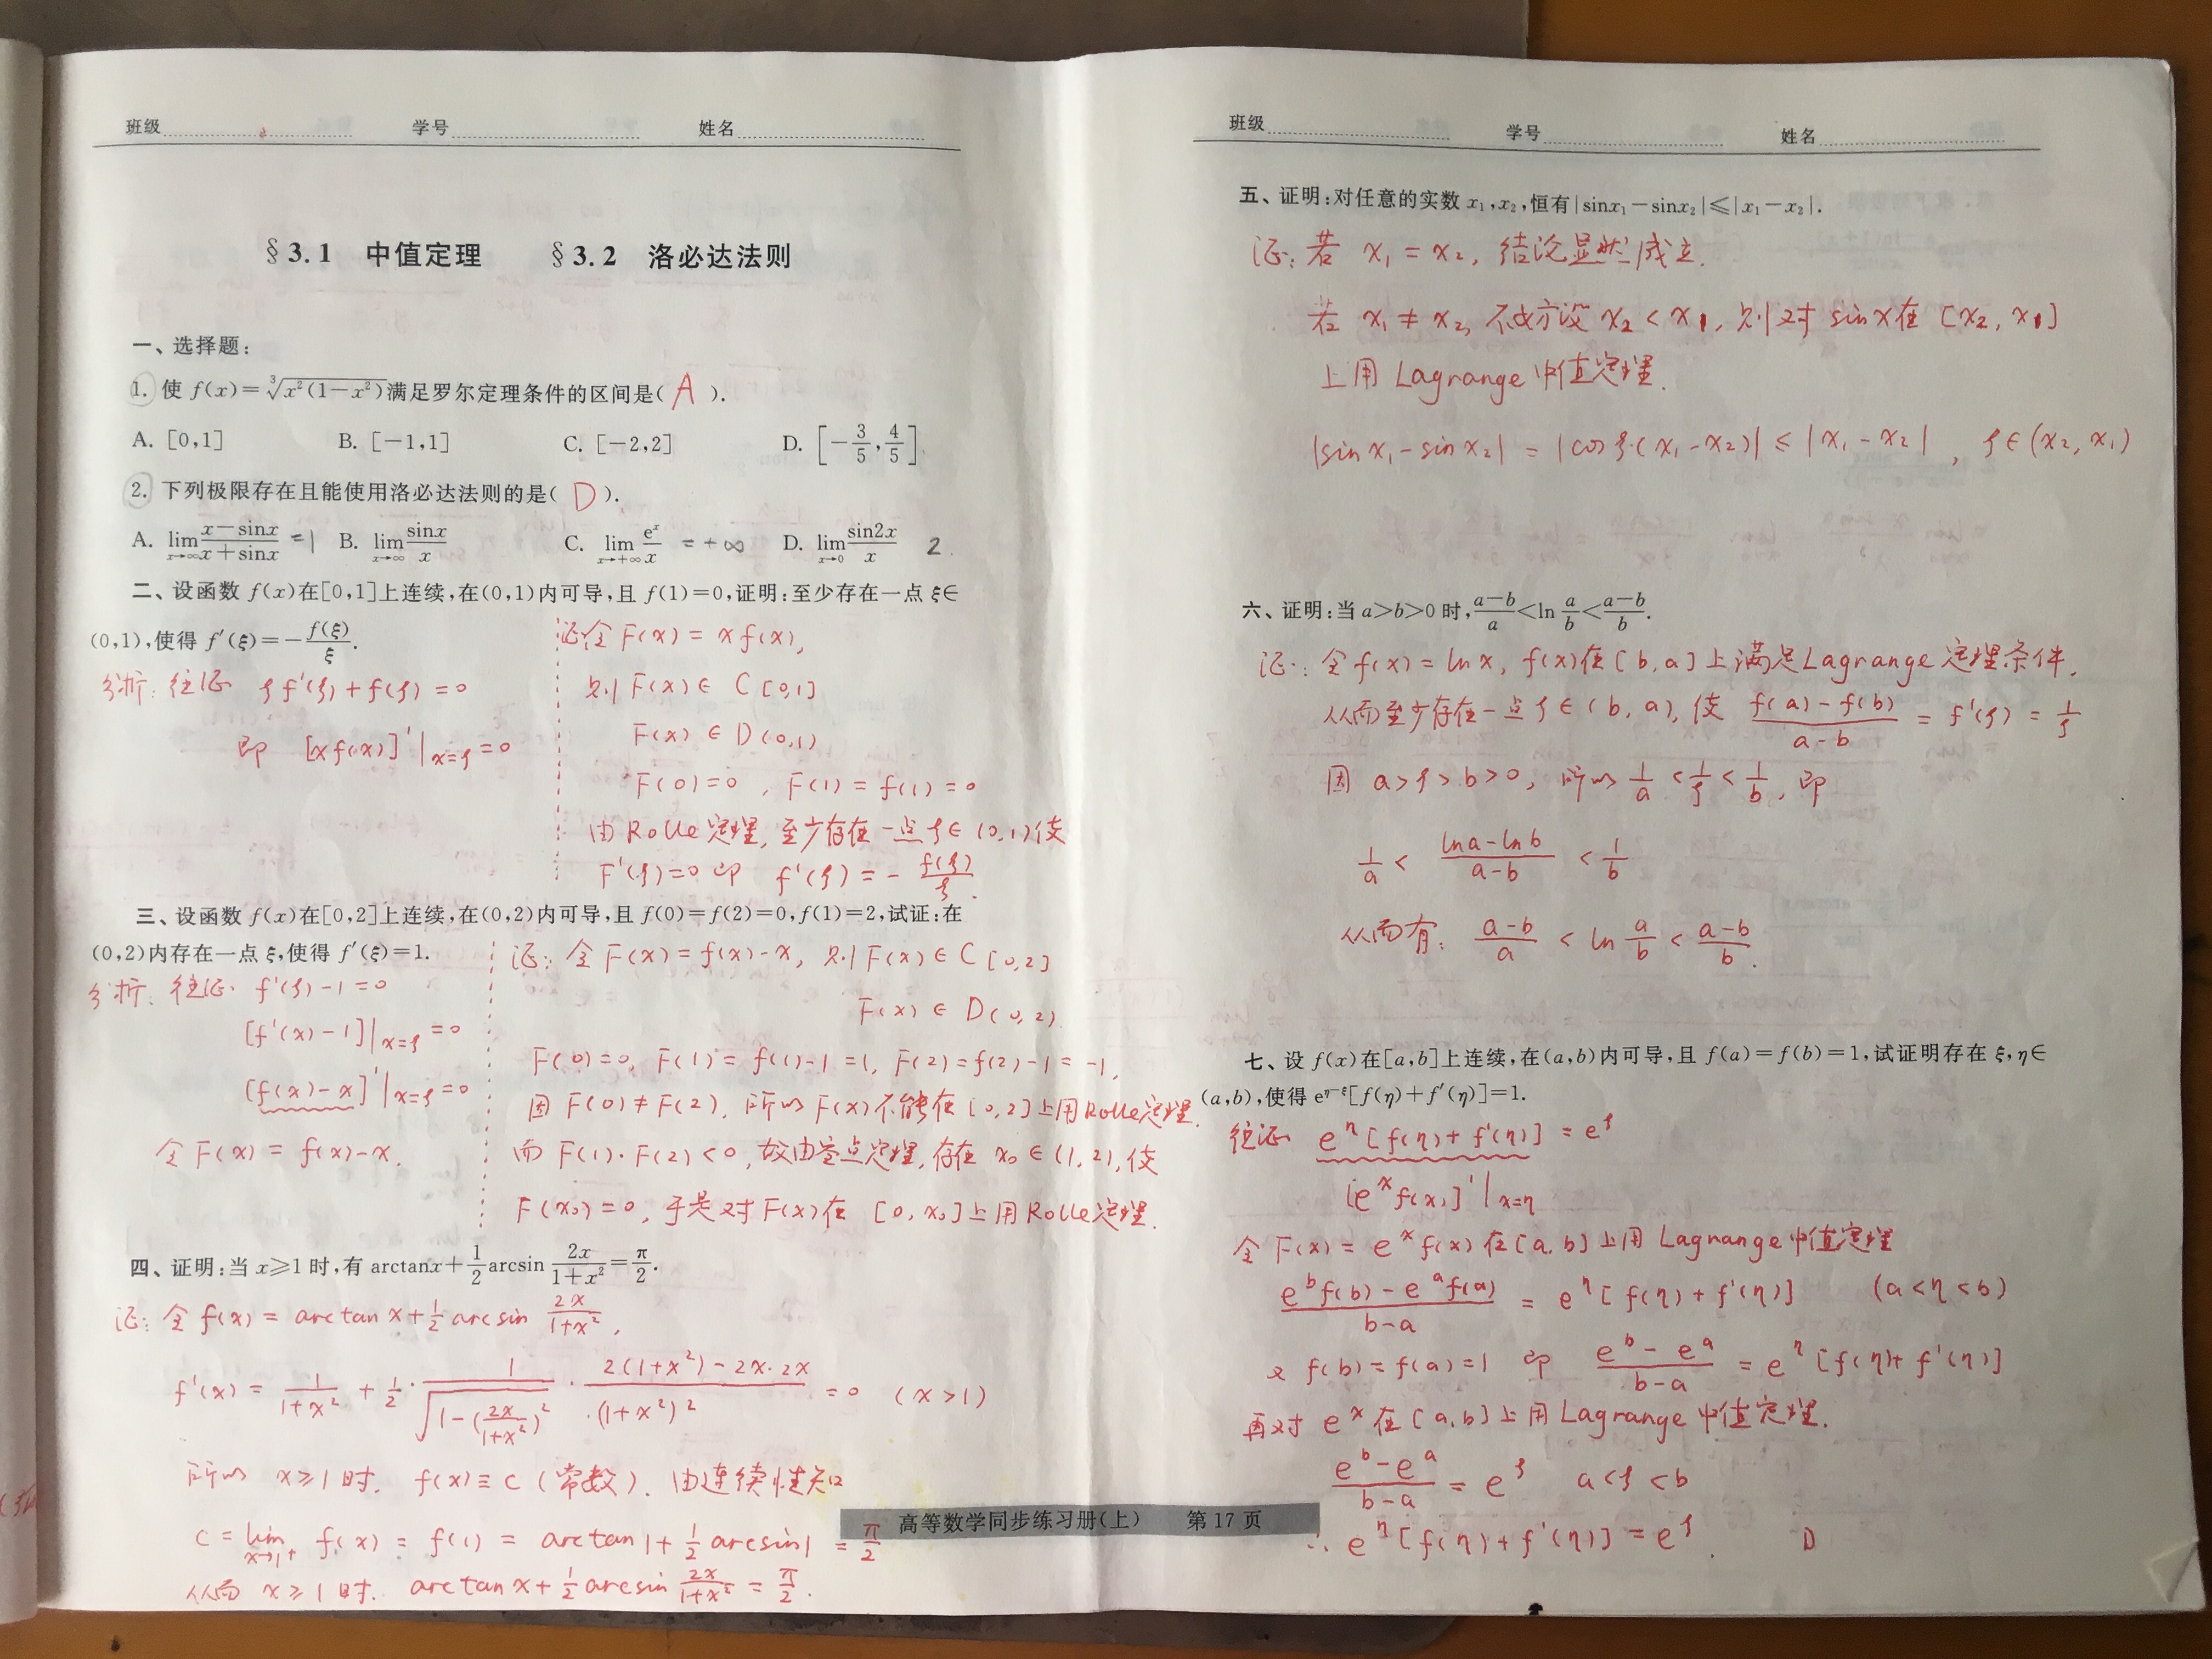 班级 学号 姓名
§3.1 中值定理 §3.2 洛必达法则
一、选择题:
1. 使 f(x)=∛(x²(1-x²)) 满足罗尔定理条件的区间是( A ).
A. [0,1] B. [-1,1] C. [-2,2] D. [-3/5, 4/5]
2. 下列极限存在且能使用洛必达法则的是( D ).
A. lim_{x→∞} (x-sinx)/(x+sinx) =1 B. lim_{x→∞} sinx/x C. lim_{x→+∞} e^x/x =+∞ D. lim_{x→0} sin2x/x 2
二、设函数 f(x)在[0,1]上连续,在(0,1)内可导,且 f(1)=0,证明:至少存在一点 ξ∈
(0,1),使得 f′(ξ)=-f(ξ)/ξ.
分析: 往证 ξf'(ξ)+f(ξ)=0
即 [xf(x)]'|_{x=ξ}=0
证令 F(x)=xf(x),
则 F(x)∈C[0,1]
F(x)∈D(0,1)
F(0)=0, F(1)=f(1)=0
由Rolle定理, 至少存在一点ξ∈(0,1)使
F'(ξ)=0 即 f'(ξ)=-f(ξ)/ξ.
三、设函数 f(x)在[0,2]上连续,在(0,2)内可导,且 f(0)=f(2)=0,f(1)=2,试证:在
(0,2)内存在一点 ξ,使得 f′(ξ)=1.
分析: 往证. f'(ξ)-1=0
[f'(x)-1]|_{x=ξ}=0
[f(x)-x]'|_{x=ξ}=0
令 F(x)=f(x)-x.
证: 令 F(x)=f(x)-x, 则 F(x)∈C[0,2]
F(x)∈D(0,2).
F(0)=0, F(1)=f(1)-1=1, F(2)=f(2)-1=-1,
因 F(0)≠F(2), 所以F(x)不能在[0,2]上用Rolle定理.
而 F(1)·F(2)<0, 故由零点定理, 存在 x₀∈(1,2), 使
F(x₀)=0, 于是对F(x)在 [0,x₀]上用Rolle定理.
四、证明:当 x≥1 时,有 arctanx+1/2 arcsin 2x/(1+x²)=π/2.
证: 令 f(x)=arctanx+1/2 arcsin 2x/(1+x²),
f'(x)=1/(1+x²)+1/2·1/√(1-(2x/(1+x²))²)·(2(1+x²)-2x·2x)/(1+x²)²=0 (x>1)
所以 x≥1时, f(x)≡C(常数). 由连续性知
C=lim_{x→1+} f(x)=f(1)=arctan1+1/2 arcsin1=π/2
从而 x≥1时. arctanx+1/2 arcsin 2x/(1+x²)=π/2.
班级 学号 姓名
五、证明:对任意的实数 x₁,x₂,恒有|sinx₁-sinx₂|≤|x₁-x₂|.
证: 若 x₁=x₂, 结论显然成立.
若 x₁≠x₂, 不妨设 x₂<x₁, 则对 sinx在[x₂,x₁]
上用 Lagrange中值定理.
|sinx₁-sinx₂|=|cosξ·(x₁-x₂)|≤|x₁-x₂|, ξ∈(x₂,x₁)
六、证明:当 a>b>0 时,(a-b)/a<ln a/b<(a-b)/b.
证: 令 f(x)=lnx, f(x)在[b,a]上满足Lagrange 定理条件.
从而至少存在一点ξ∈(b,a), 使 (f(a)-f(b))/(a-b)=f'(ξ)=1/ξ
因 a>ξ>b>0, 所以 1/a<1/ξ<1/b, 即
1/a<(lna-lnb)/(a-b)<1/b
从而有: (a-b)/a<ln a/b<(a-b)/b.
七、设 f(x)在[a,b]上连续,在(a,b)内可导,且 f(a)=f(b)=1,试证明存在 ξ,η∈
(a,b),使得 e^{η-ξ}[f(η)+f′(η)]=1.
往证 e^η[f(η)+f'(η)]=e^ξ
[e^x f(x)]'|_{x=η}
令 F(x)=e^x f(x)在[a,b]上用 Lagrange中值定理
(e^b f(b)-e^a f(a))/(b-a)=e^η[f(η)+f'(η)] (a<η<b)
又 f(b)=f(a)=1 即 (e^b-e^a)/(b-a)=e^η[f(η)+f'(η)]
再对 e^x 在[a,b]上用Lagrange中值定理.
(e^b-e^a)/(b-a)=e^ξ a<ξ<b
∴ e^η[f(η)+f'(η)]=e^ξ.
高等数学同步练习册(上) 第 17 页